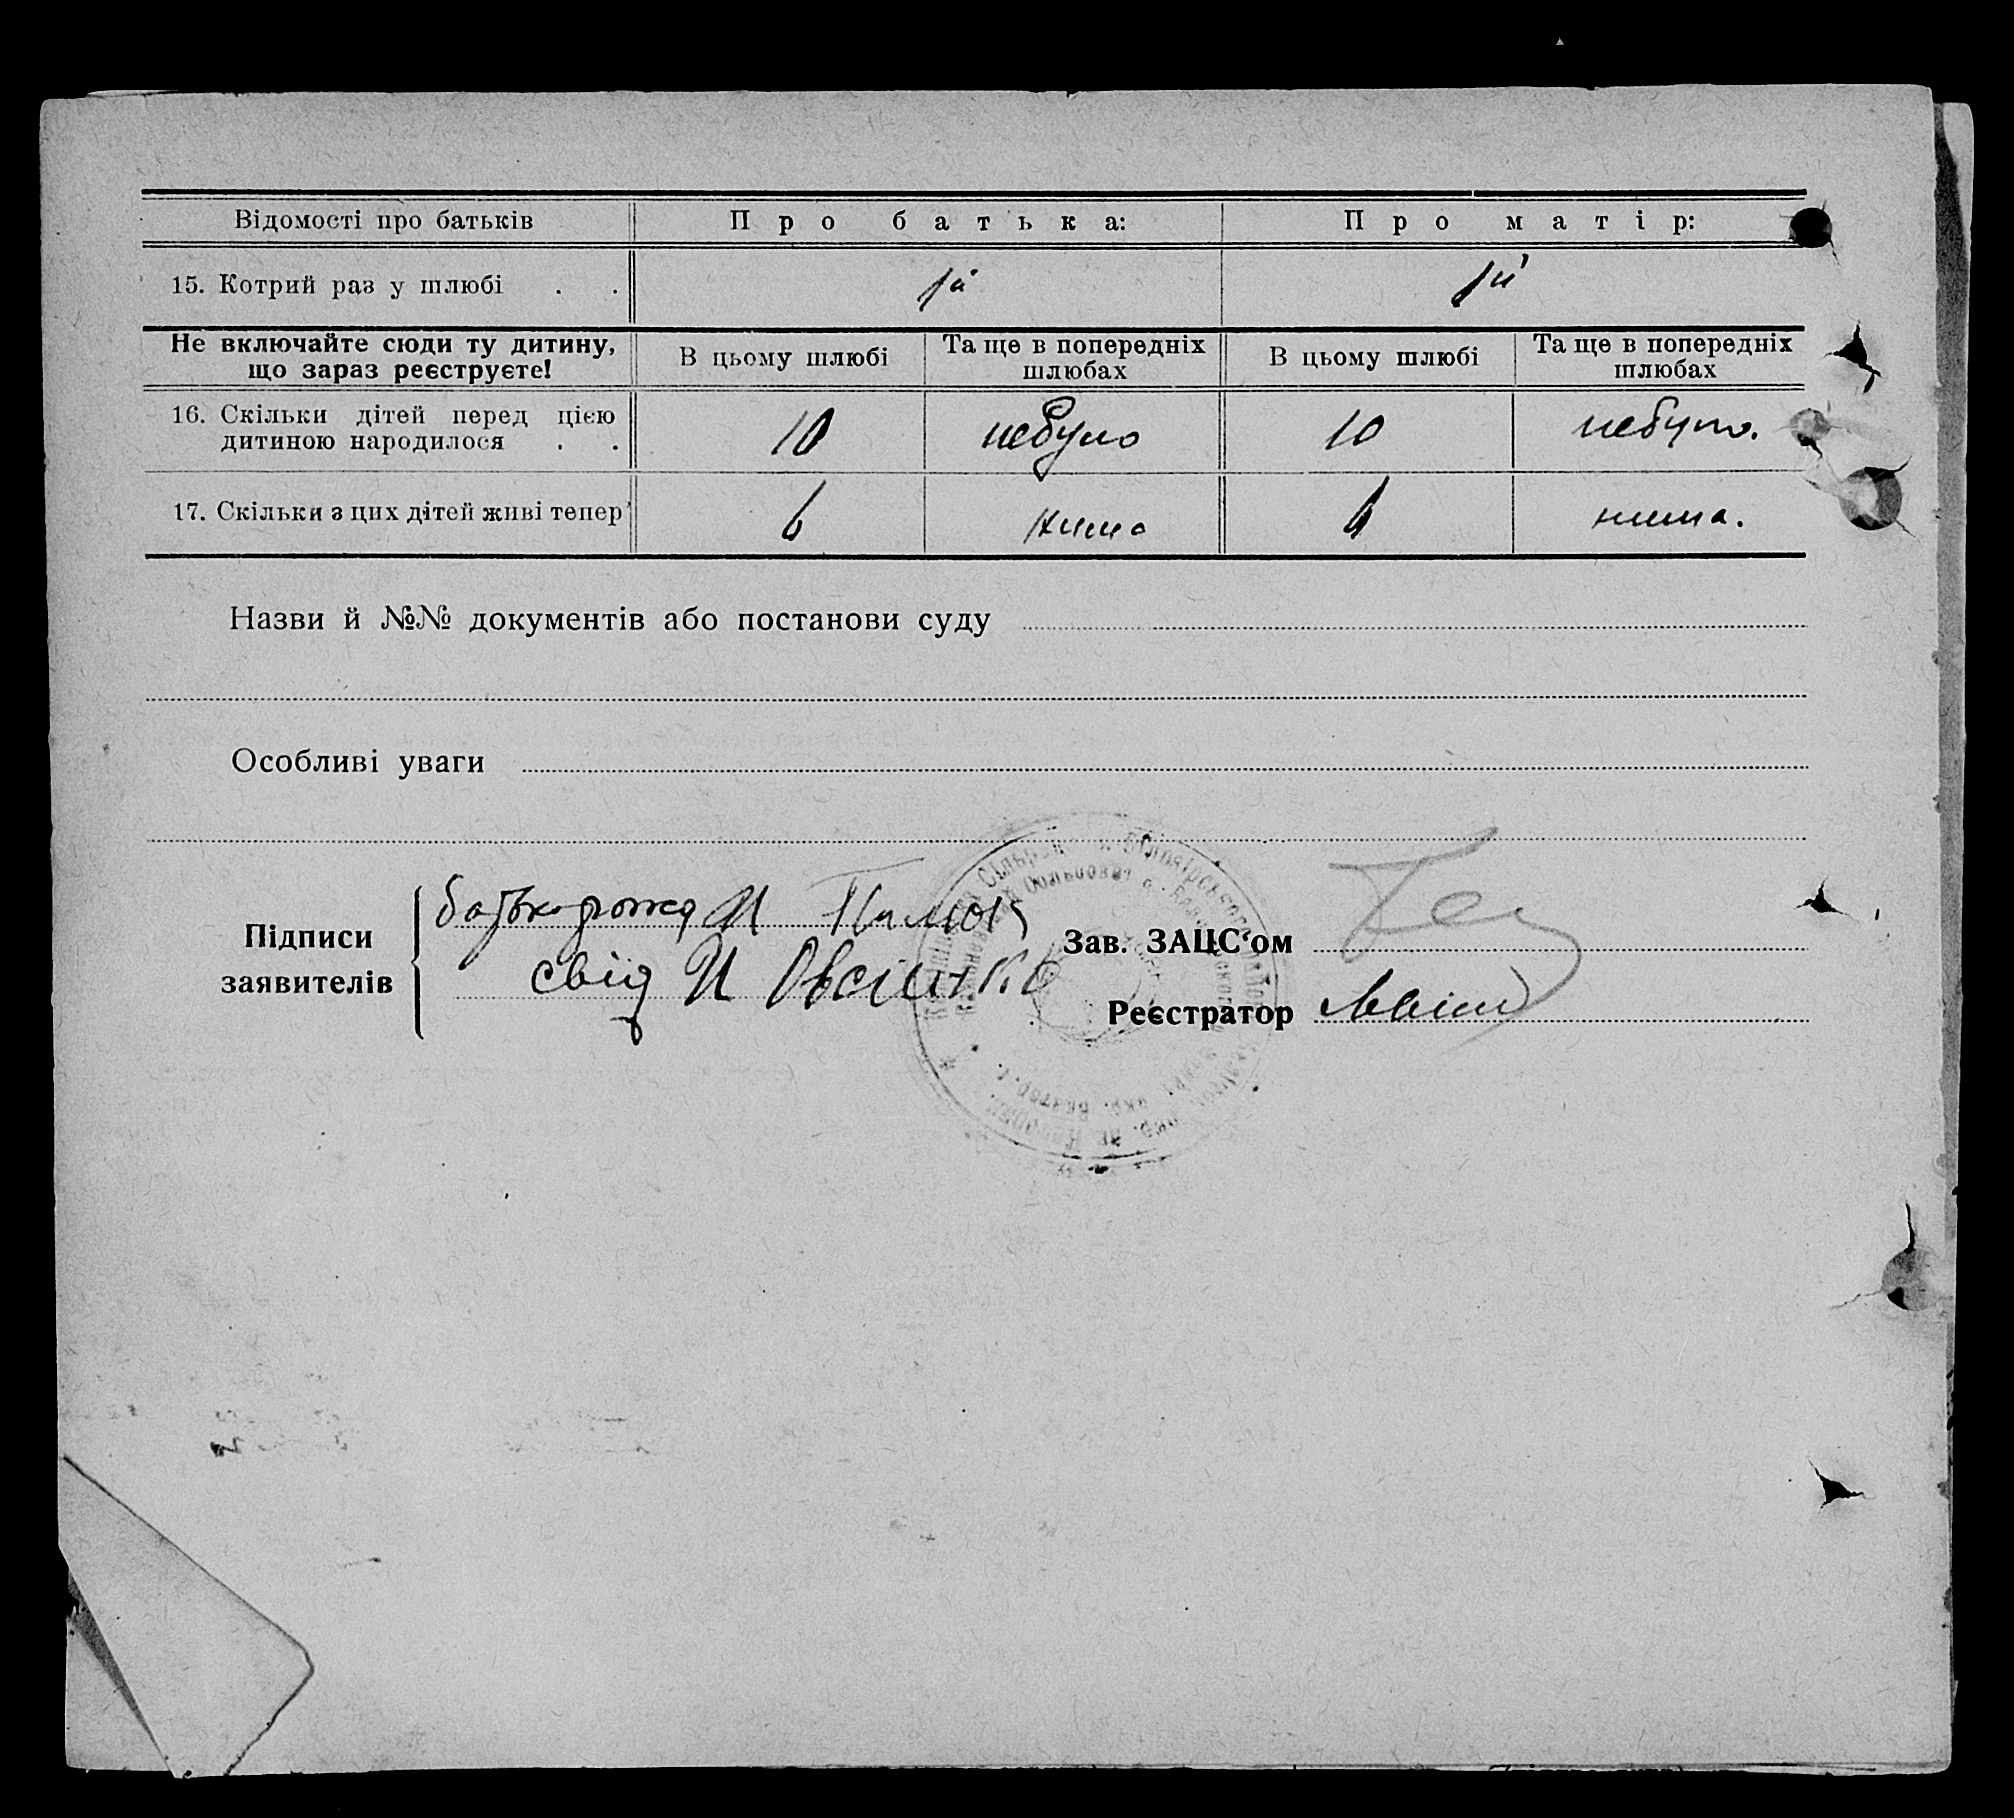 Відомості про батьків Про батька: Про матір:
15. Котрий раз у шлюбі . . 1й 1й
Не включайте сюди ту дитину,
що зараз реєструєте!
В цьому шлюбі
Та ще в попередніх
шлюбах
В цьому шлюбі
Та ще в попередніх
шлюбах
16. Скільки дітей перед цією
дитиною народилося . .
10 небуло 10 небуло.
17. Скільки з цих дітей живі тепер 6 нима 6 нима.
Назви й №№ документів або постанови суду
Особливі уваги
Підписи
заявителів
свід И Овсієнко
Зав. ЗАЦС'ом
Реєстратор